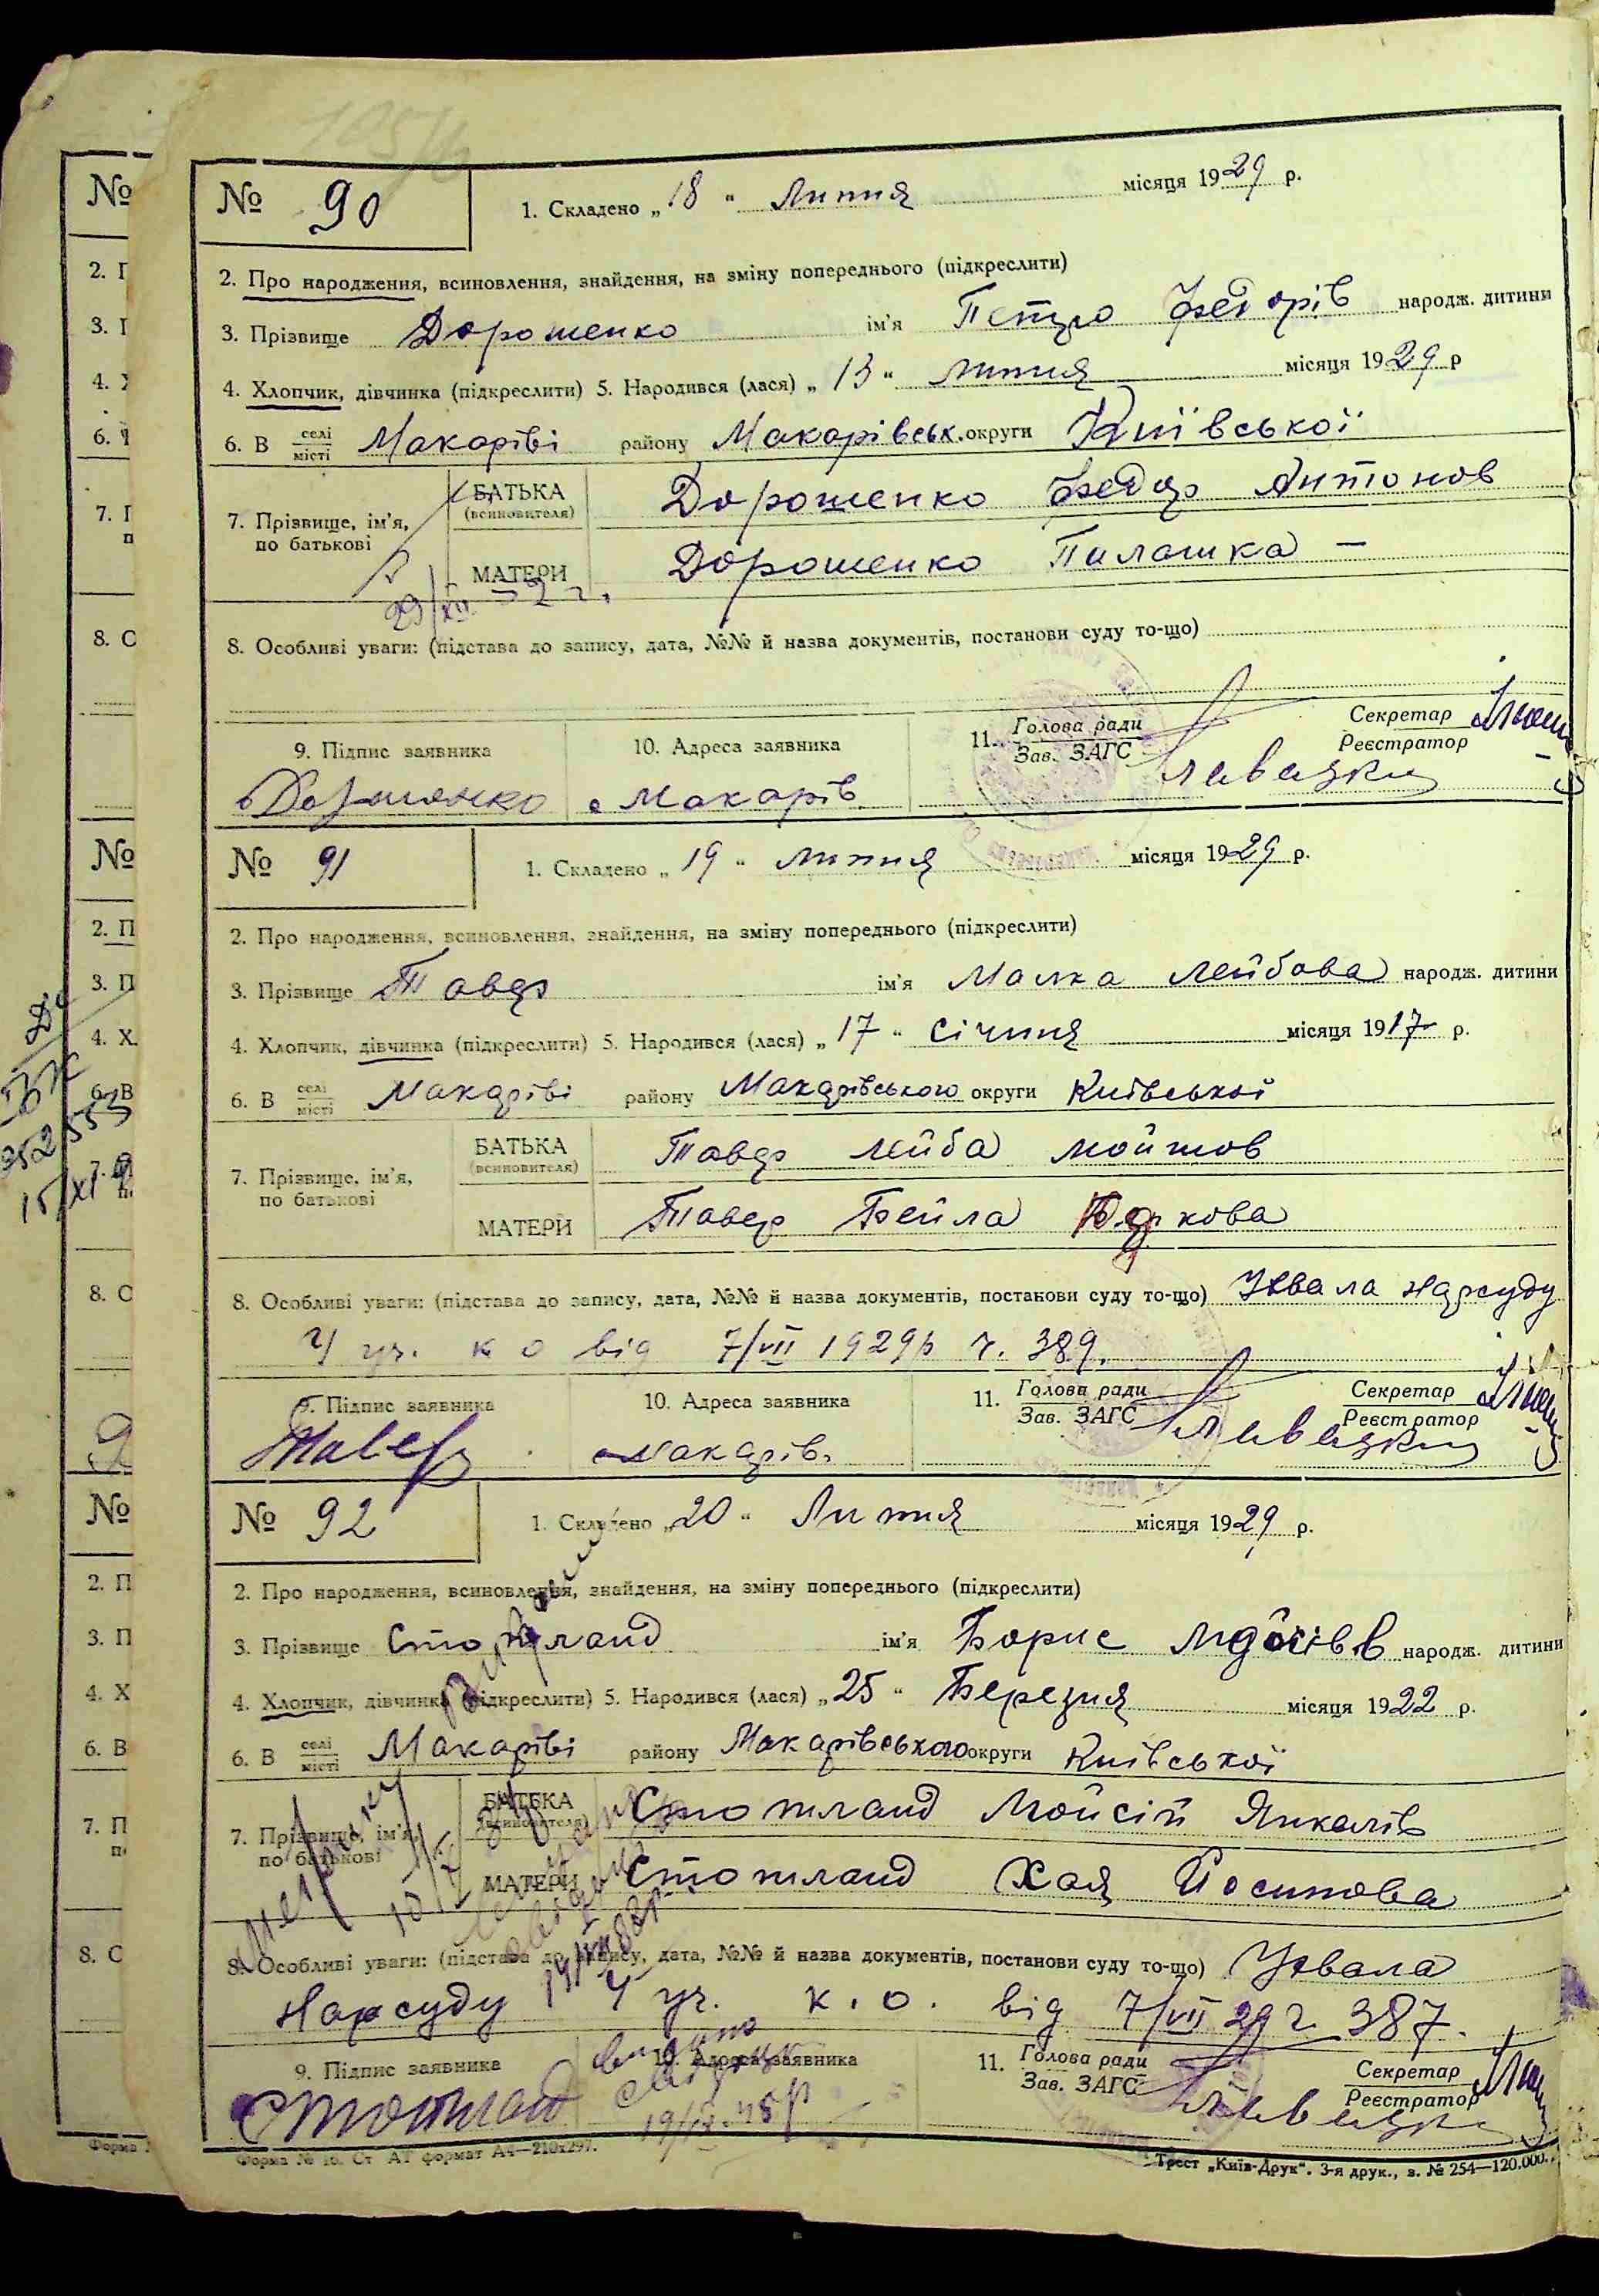 № 90
1. Складено „18“ Липня місяця 1929 р.
2. Про народження, всиновлення, знайдення, на зміну попереднього (підкреслити)
3. Прізвище Дорошенко ім'я Петро Федорів народж. дитини
4. Хлопчик, дівчинка (підкреслити) 5. Народився (лася) „13“ липня місяця 1929 р
6. В селі місті Макарові району Макарівськ. округи Київської
7. Прізвище, ім'я, по батькові
БАТЬКА (всиновителя) Дорошенко Федор Антонов
МАТЕРИ Дорошенко Пилашка —
8. Особливі уваги: (підстава до запису, дата, №№ й назва документів, постанови суду то-що)
9. Підпис заявника
10. Адреса заявника
11. Голова ради Зав. ЗАГС
Секретар Реєстратор
Дорошенко
Макарів
№ 91
1. Складено „19“ липня місяця 1929 р.
2. Про народження, всиновлення, знайдення, на зміну попереднього (підкреслити)
3. Прізвище Тавер ім'я Малка Лейбова народж. дитини
4. Хлопчик, дівчинка (підкреслити) 5. Народився (лася) „17“ січня місяця 1917 р.
6. В селі місті Макарові району Макарівського округи Київської
7. Прізвище, ім'я, по батькові
БАТЬКА (всиновителя) Тавер Лейба Мойшов
МАТЕРИ Тавер Бейла Беркова
8. Особливі уваги: (підстава до запису, дата, №№ й назва документів, постанови суду то-що) Ухвала нарсуду
4 уч. к о від 7/VII 1929 р ч. 389.
9. Підпис заявника
10. Адреса заявника
11. Голова ради Зав. ЗАГС
Секретар Реєстратор
Тавер
Макарів.
№ 92
1. Складено „20“ Липня місяця 1929 р.
2. Про народження, всиновлення, знайдення, на зміну попереднього (підкреслити)
3. Прізвище Стотланд ім'я Борис народж. дитини
4. Хлопчик, дівчинка (підкреслити) 5. Народився (лася) „25“ Березня місяця 1922 р.
6. В селі місті Макарові району Макарівського округи Київської
7. Прізвище, ім'я, по батькові
БАТЬКА (всиновителя) Стотланд Мойсій Янкелів
МАТЕРИ Стотланд Хая Йосипова
8. Особливі уваги: (підстава до запису, дата, №№ й назва документів, постанови суду то-що) Ухвала
Нарсуду 4 уч. к. о. від 7/VII 29 ч 387.
9. Підпис заявника
10. Адреса заявника
11. Голова ради Зав. ЗАГС
Секретар Реєстратор
Стотланд
Форма № 16. Ст АТ формат А4—210x297.
Трест „Київ-Друк“. 3-я друк., з. № 254—120.000.